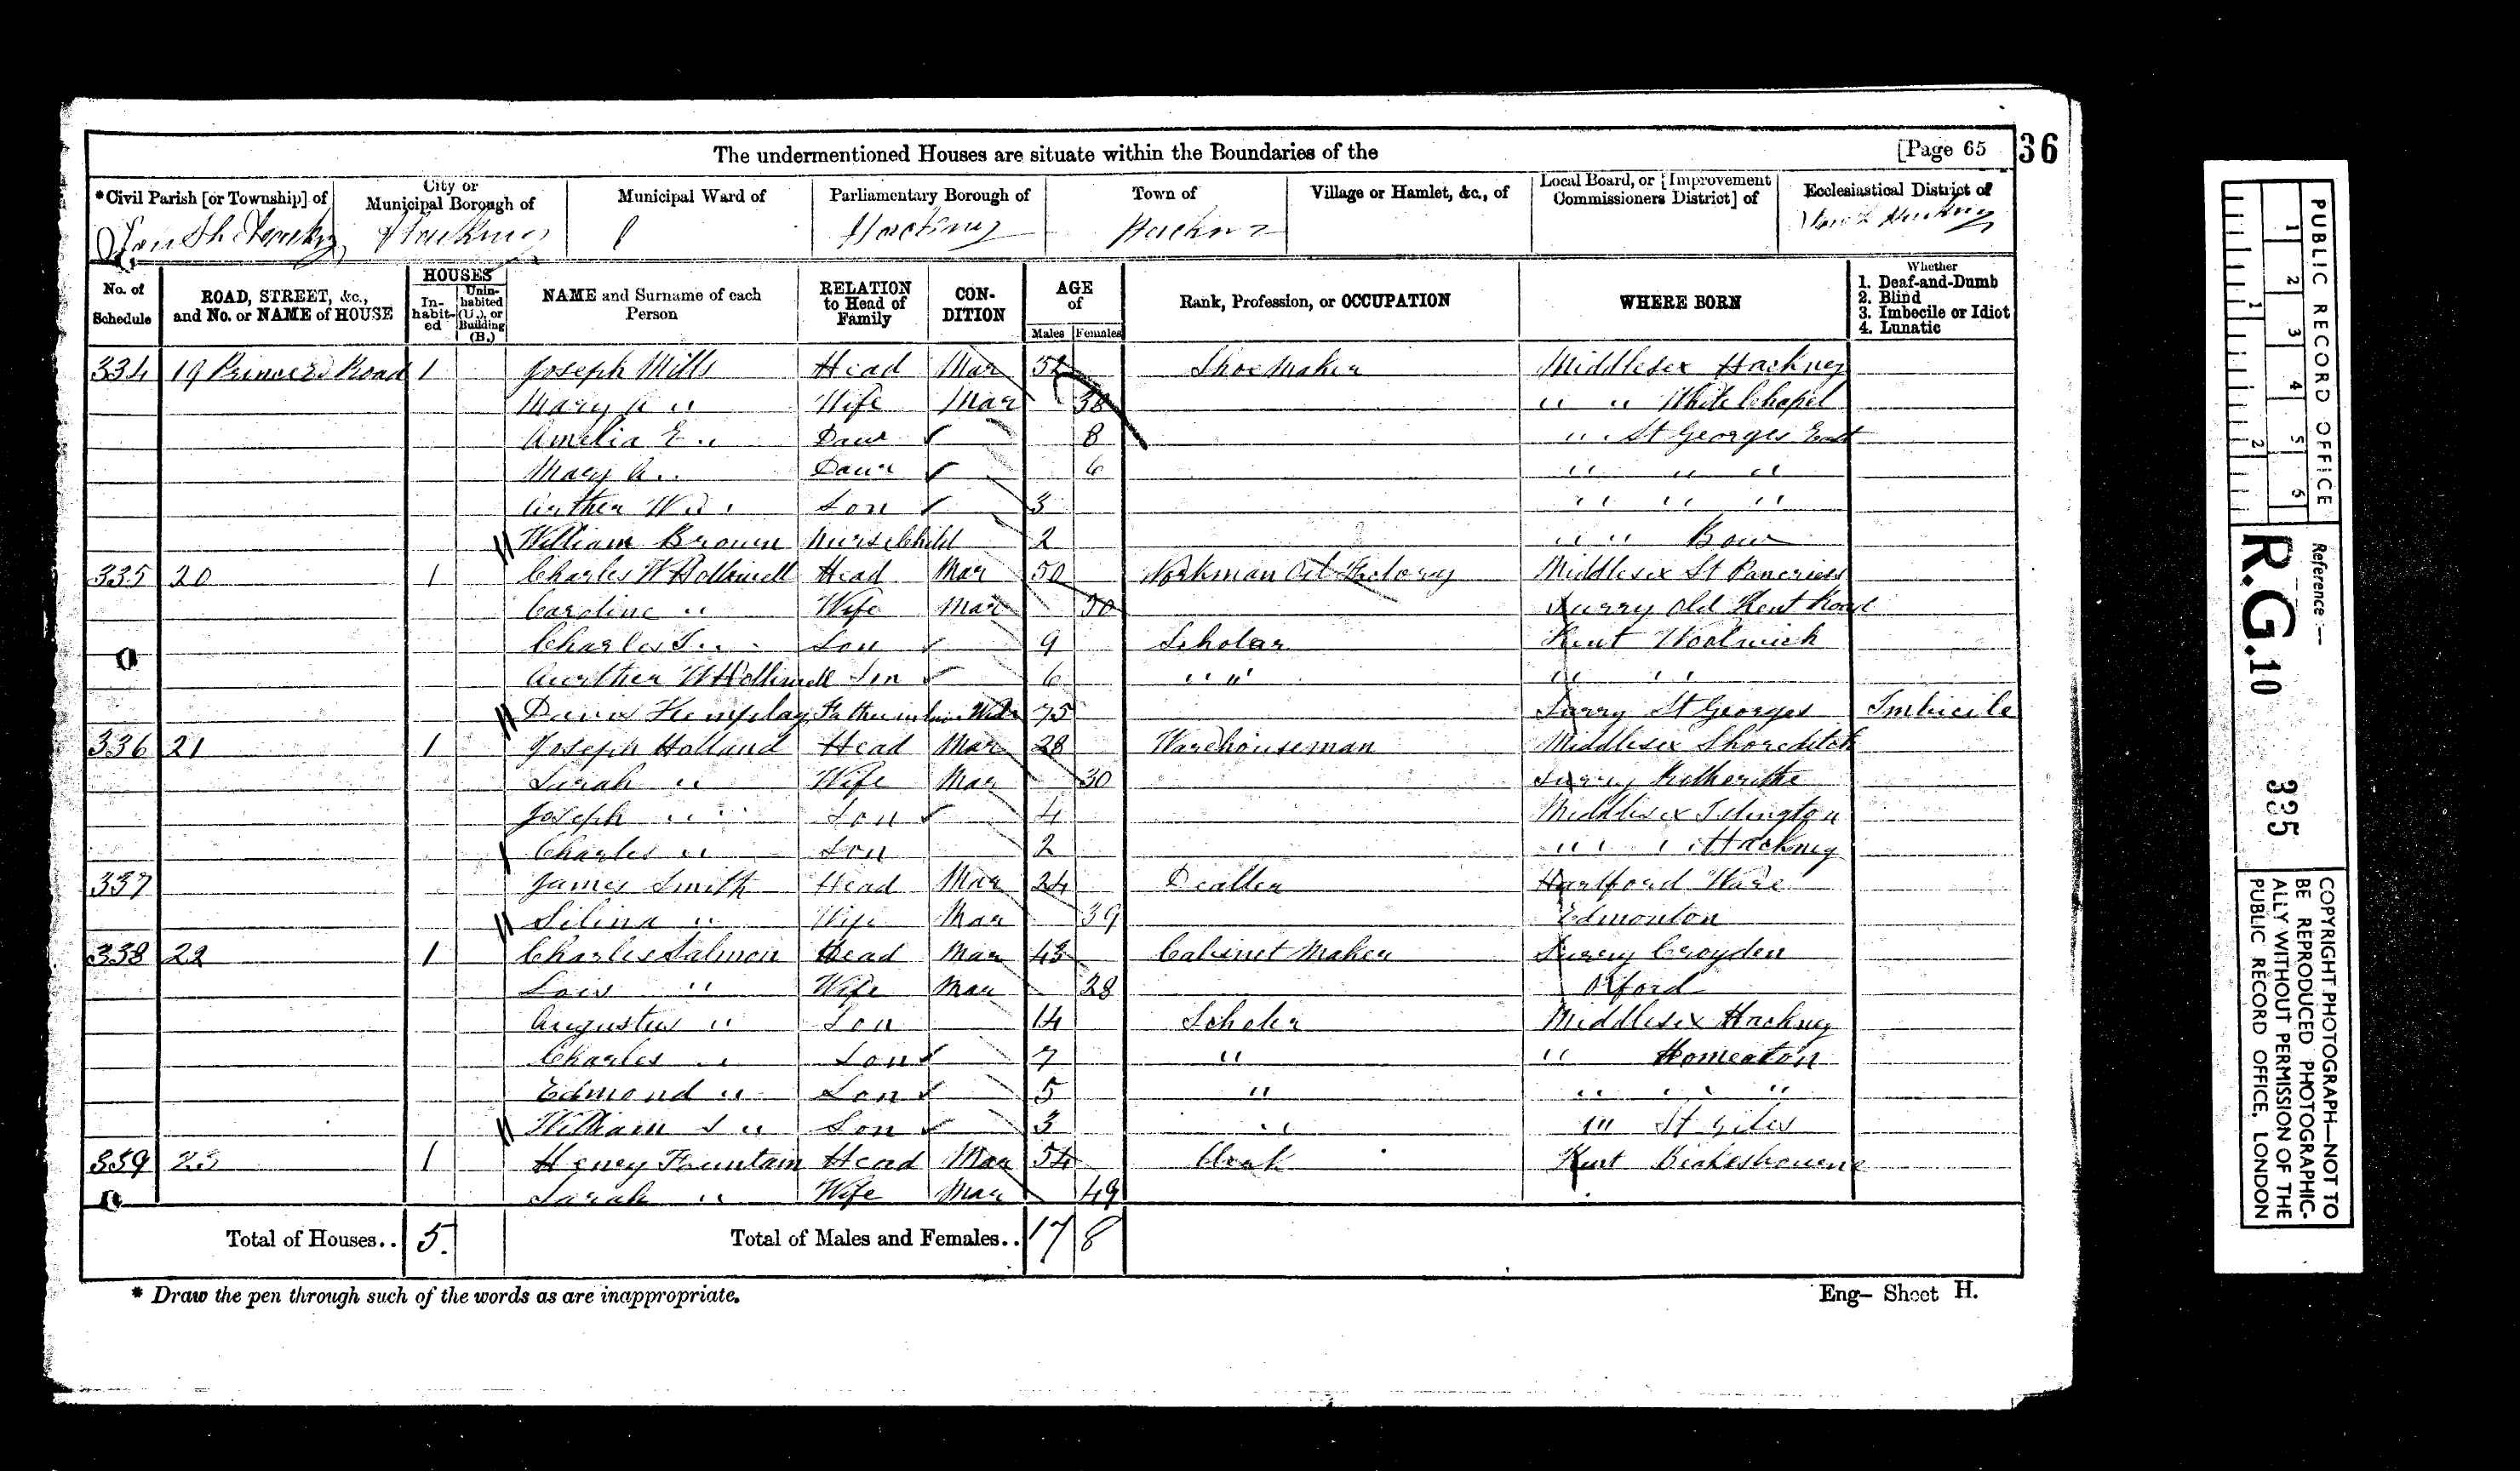 The undermentioned Houses are situate within the Boundaries of the [Page 65 36
*Civil Parish [or Township] of City or Municipal Borough of Municipal Ward of Parliamentary Borough of Town of Village or Hamlet, &c., of Local Board, or [Improvement Commissioners District] of Ecclesiastical District of
Hackney Hackney Hackney Hackney
No. of Schedule ROAD, STREET, &c., and No. or NAME of HOUSE HOUSES In-habit-ed Unin-habited (U.), or Building (B.) NAME and Surname of each Person RELATION to Head of Family CON-DITION AGE of Males Females Rank, Profession, or OCCUPATION WHERE BORN Whether 1. Deaf-and-Dumb 2. Blind 3. Imbecile or Idiot 4. Lunatic
334 19 Princess Road 1 Joseph Mills Head Mar 52 Shoe Maker Middlesex Hackney
Mary A " Wife Mar 38 " " White Chapel
Amelia E " Daur 8 " " St Georges East
Mary A " Daur 6 " " "
Arther W " Son 3 " " "
William Brown Nurse Child 2 " " Bow
335 20 1 Charles W Holliwell Head Mar 50 Workman Oil Factory Middlesex St Pancriess
Caroline " Wife Mar 50 Surry Old Kent Road
Charles " Son 9 Scholar Kent Woolwich
Aurther W Holliwell Son 6 " " " "
Humplay Father in law Widr 75 Surry St Georges Imbicile
336 21 1 Joseph Holland Head Mar 28 Warehouseman Middlesex Shoreditch
Sarah " Wife Mar 30 Surry Rutherithe
Joseph " Son 4 Middlesex Islington
Charles " Son 2 " " Hackney
337 James Smith Head Mar 24 Dealler Hartford Ware
Silina " Wife Mar 39 Edmonton
338 22 1 Charles Salmon Head Mar 43 Cabinet Maker Surry Croyden
Lois " Wife Mar 28 Oxford
Augustus " Son 14 Scholer Middlesex Hackney
Charles " Son 7 " " Homearton
Edmond " Son 5 " " " "
William S " Son 3 " " St Giles
339 23 1 Henry Fountain Head Mar 54 Clerk Kent Beakesbourne
Sarah " Wife Mar 49
Total of Houses.. 5. Total of Males and Females.. 17 8
* Draw the pen through such of the words as are inappropriate. Eng– Sheet H.
PUBLIC RECORD OFFICE
1 2 3 4 5 6
1 2
Reference :—
R.G. 10 335
COPYRIGHT PHOTOGRAPH—NOT TO
BE REPRODUCED PHOTOGRAPHIC-
ALLY WITHOUT PERMISSION OF THE
PUBLIC RECORD OFFICE, LONDON